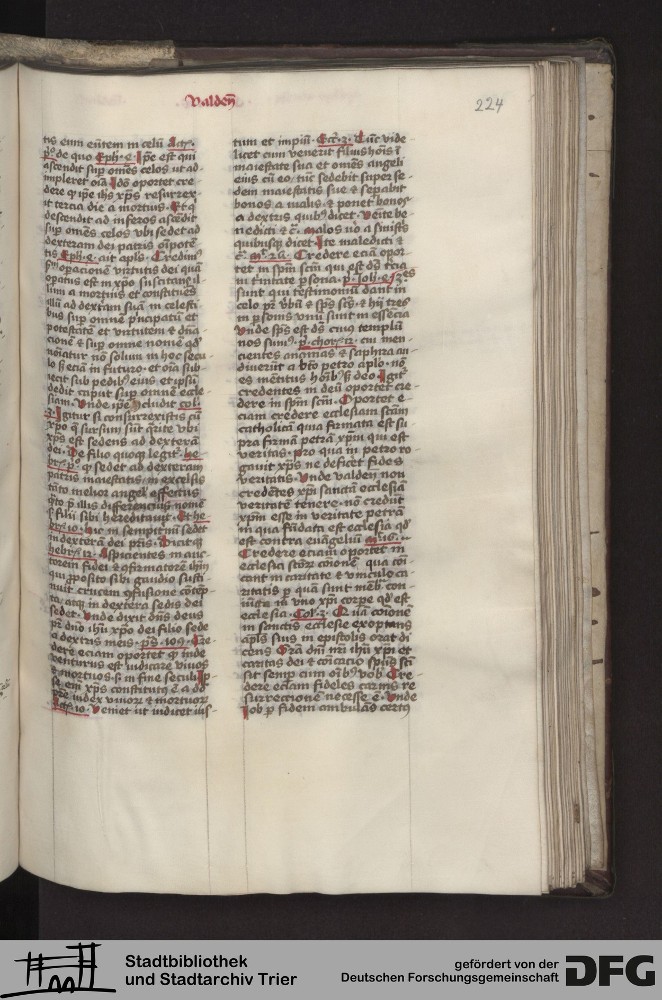 Valden̄
224
tis eum eūtem in celū Act.
p̊ de quo Eph. e. Ip̄e est qui
ascendit sup om̄es celos ut ad
impleret oīa Id̄o oportet cre
dere q ip̄e ih̄s xp̄s resurrex
it tercia die a mortuis Et q
descendit ad inferos ascēdit
sup om̄es celos vbi sedet ad
dexteram dei patris om̄ipotē
tis Eph. e. ait apls. Credimꝰ
fm̄ opacionem virtutis dei quā
opatus est in xp̄o suscitans il
lum a mortuis et constituēs
illū ad dextram suā in celesti
bus sup om̄ne p̄ncipatū et
potestatē et virtutem & dn̄a
cionē & sup om̄ne nomē qd̓
noīatur nō solum in hoc secu
lo sꝫ eciā in futuro. et oīa sub
iecit sub pedibꝰ eius et ipsū
dedit caput sup om̄nē eccle
siam. Vnde ip̄e cludit col.
3. Igitur si consurrexistis cū
xp̄o q̄ sursum sūt q̄rite vbi
xp̄s est sedens ad dexterā
dei. De filio quoqꝫ legit̓. he
br. p̊. q̓ sedet ad dexteram
patris maiestatis in excelsis
tāto melior angel̓ effectus
q̄to p̄ illis differenciꝰ nomē
p̄ filii sibi hereditauit. Et he
br. 10. hic in sempit̓nū sedet
in dexterā dei p̄ris. Dicitqꝫ
hebr. 12. Aspicientes in auc
torem fidei & ꝯsummatorē ihm̄
qui p̄posito sibi gaudio susti
nuit crucem ꝯfusione cōtēp
ta. atqꝫ in dextera sedis dei
sedet. Vnde dixit dn̄s deus
pr̄ dn̄o ihū xp̄o dei filio sede
a dextris meis. ps. 109. Cre
dere eciam oportet q̓ inde
venturus est iudicare viuos
& mortuos. s. in fine seculi. Ip
se em̄ xp̄s constitutꝰ ē a dō
pr̄e iudex viuorꝫ & mortuorꝫ
Act. 10. Veniet ut iudicet ius
tum et impiū. Ecc̄. 3. Tūc vide
licet cum venerit filius hoīs ī
maiestate sua et om̄es angeli
eius cū eo. tūc sedebit super se
dem maiestatis sue & sepabit
bonos a malis. & ponet bonos
a dextris quibꝰ dicet. Venite be
nedicti & c̄. malos vo a sinistˢ
quibusqꝫ dicet. Ite maledicti &
c̄. Credere eciā opor
tet in spm̄ scm̄ qui est ds̄ tc̄ia
in t̓nitate p̄sona. p̄. Joh. e. 3es
sunt qui testimoniū dant in
celo pr̄ vbū & sps̄ scs̄. & hij tres
in p̄sonis vnū sunt in essēcia
Vnde sps̄ est ds̄ cuiꝰ templū
nos sumꝰ. p̄. chor. 12. cui men
cientes ananias & saphira au
diuerūt a bt̄o petro apl̄o. nō
es mētitus hoībꝰ sꝫ deo Igit̓
credentes in deū oportet cre
dere in spm̄ scm̄. Oportet e
ciam credere ecclesiam scām
catholicā qua firmata est su
pra firmā petrā xp̄m qui est
veritas. pro qua in petro ro
gauit xp̄s ne deficet fides
veritatis. Vnde valden̄ non
credētes xp̄i sanctā ecclesiā
veritatē tenere. nō credūt
xp̄m esse in veritate petrā
in qua fūdata est ecclesiā qd̓
est contra euāgeliū m. 16.
Credere eciam oportet in
ecclesia sc̄orꝫ coionē qua coī
cant in caritate & vinculo ca
ritatis p̄ quā sunt mēb̓ con
iūcta in vno xp̄i corpe qd̓ est
ecclesia. Col. 2. Quā coionē
in sanctis ecclesie exoptans
apl̄s suis in epistolis orat di
cens Grā dn̄i nr̄i ihū xp̄i et
caritas dei & coīcacio spūs scī
sit semp cum oībꝰ vob̓ Cre
dere eciam fideles carnis re
surrectionē necesse ē. Vnde
Job p̄ fidem ambulās certꝰ
Stadtbibliothek
und Stadtarchiv Trier
gefördert von der
Deutschen Forschungsgemeinschaft
DFG